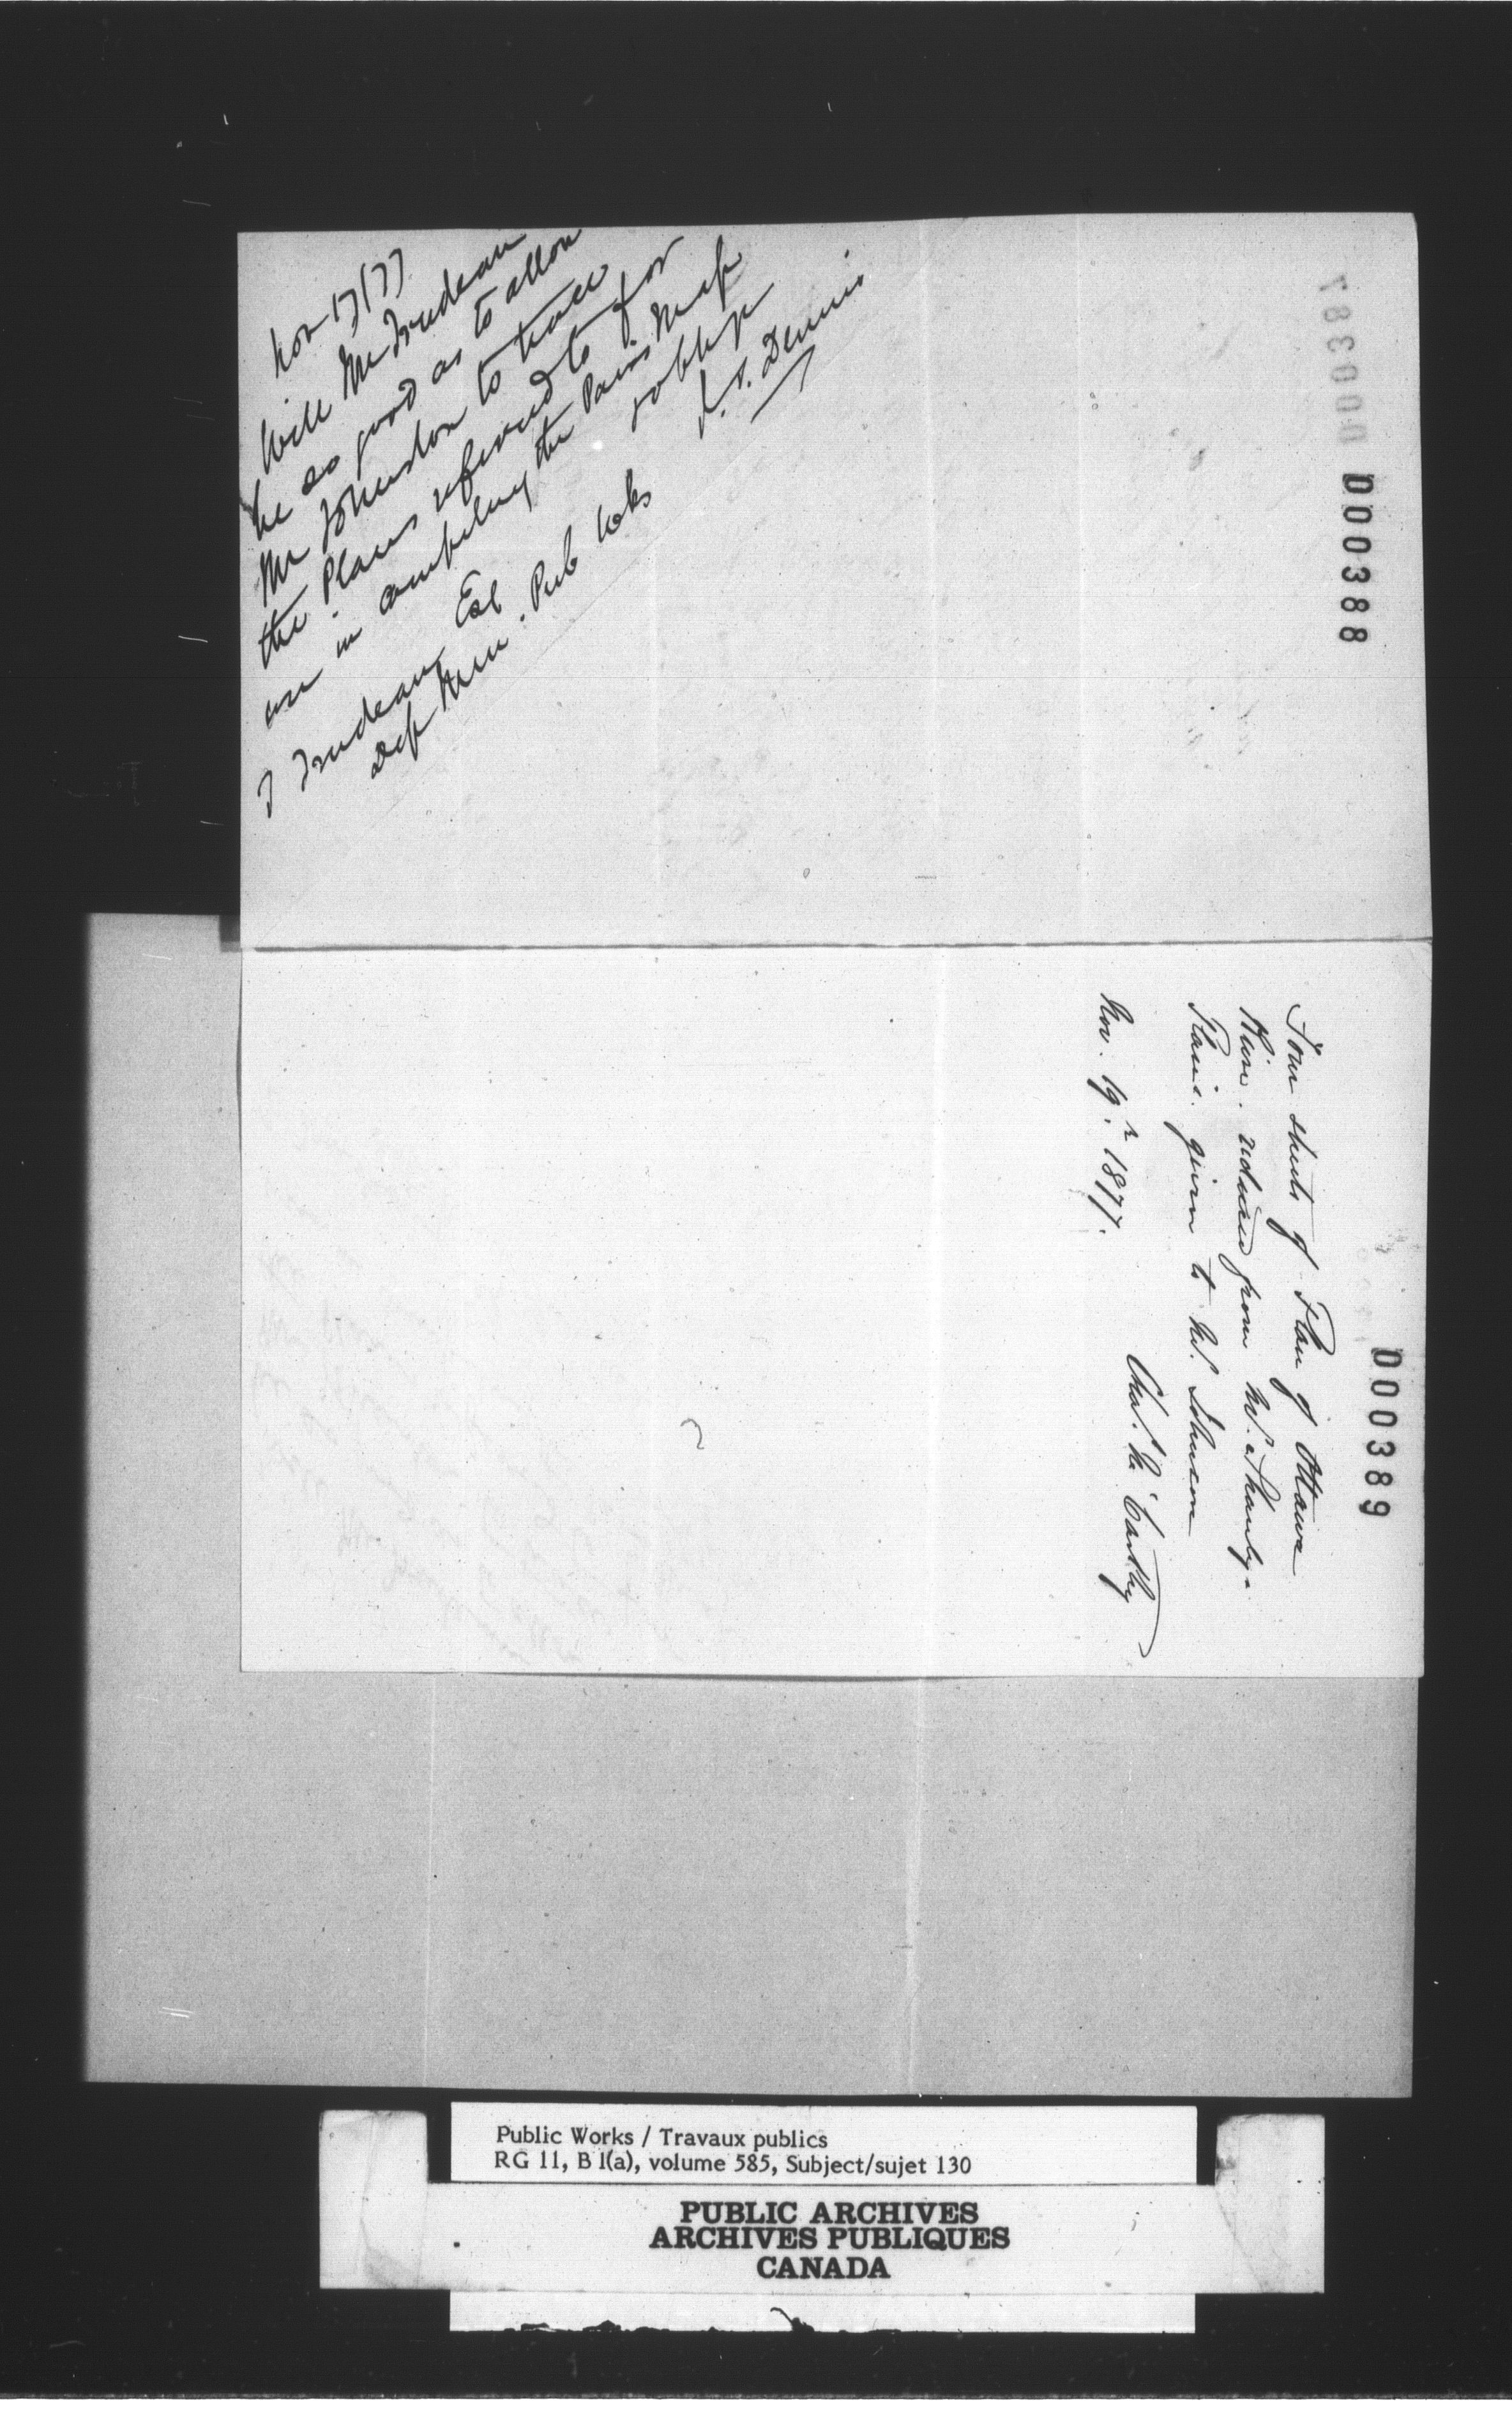 000387
000388
Nov 17/77
Will Mr Trudeau
be so good as to allow
Mr Johnston to trace
the Plans referred to for
use in compiling the Paris Map
oblige
J. S. Dennis
T Trudeau Esq
Dep Min. Pub Wks
000389
Four sheets of Plan of Ottawa
River. reduced from Mr. Shanly's
Plans. given to Mr. Johnson
Nov. 19th 1877.
Chas. McCarthy
Public Works / Travaux publics
RG 11, B 1(a), volume 585, Subject/sujet 130
PUBLIC ARCHIVES
ARCHIVES PUBLIQUES
CANADA